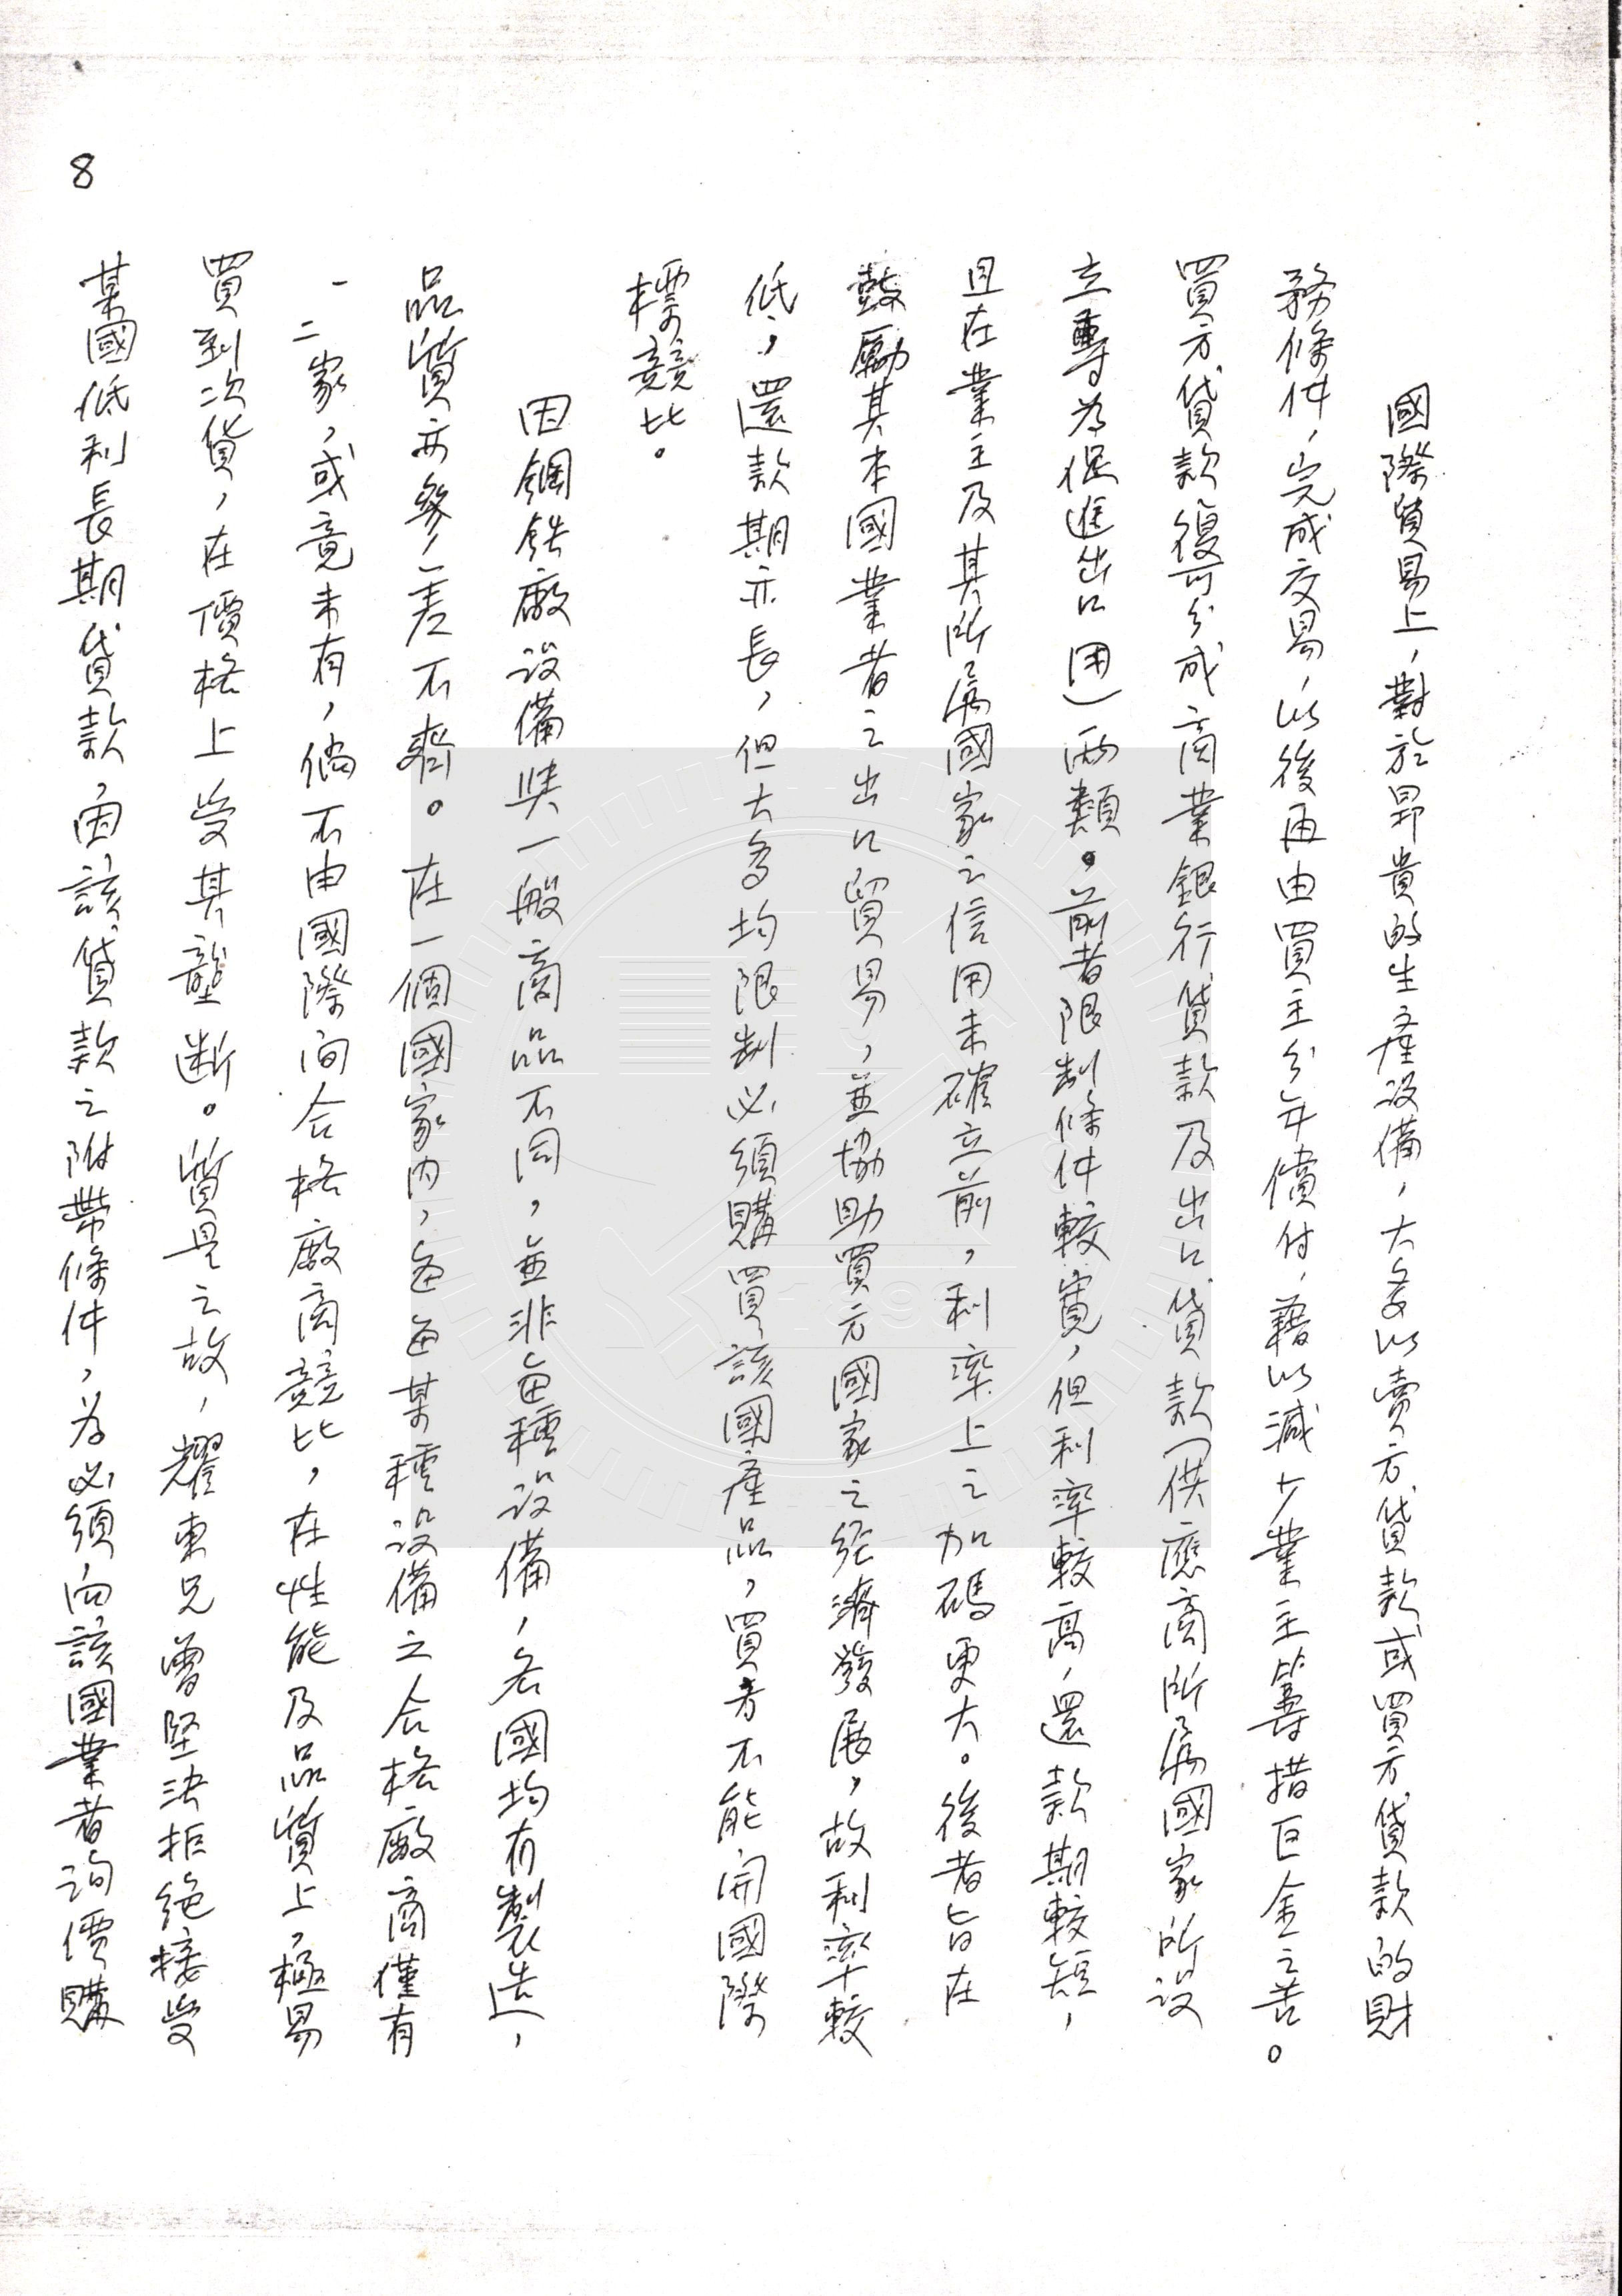 國際貿易上，對於昂貴的生產設備，大多以賣方貸款或買方貸款的財
務條件，完成交易，以後再由買主分年償付，藉以減少業主籌措巨金之苦。
買方貸款復可分成商業銀行貸款及出口貸款（供應商所屬國家所設
立專為促進出口用）兩類。前者限制條件較寬，但利率較高，還款期較短，
且在業主及其所屬國家之信用未確立前，利率上之加碼更大。後者旨在
鼓勵其本國業者之出口貿易，並協助買方國家之經濟發展，故利率較
低，還款期亦長，但大多均限制必須購買該國產品，買者不能開國際
標競比。
因鋼鐵廠設備與一般商品不同，並非每種設備，各國均有製造，
品質亦參差不齊。在一個國家內，每每某種設備之合格廠商僅有
一二家，或竟未有，倘不由國際間合格廠商競比，在性能及品質上，極易
買到次貨，在價格上受其壟斷。質是之故，耀東兄曾堅決拒絕接受
某國低利長期貸款，因該貸款之附帶條件，為必須向該國業者詢價購
8